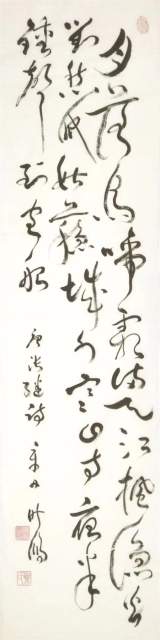 月落烏啼霜滿天江楓漁火
對愁眠姑蘇城外寒山寺夜半
鐘聲到客船
唐張繼詩 辛丑